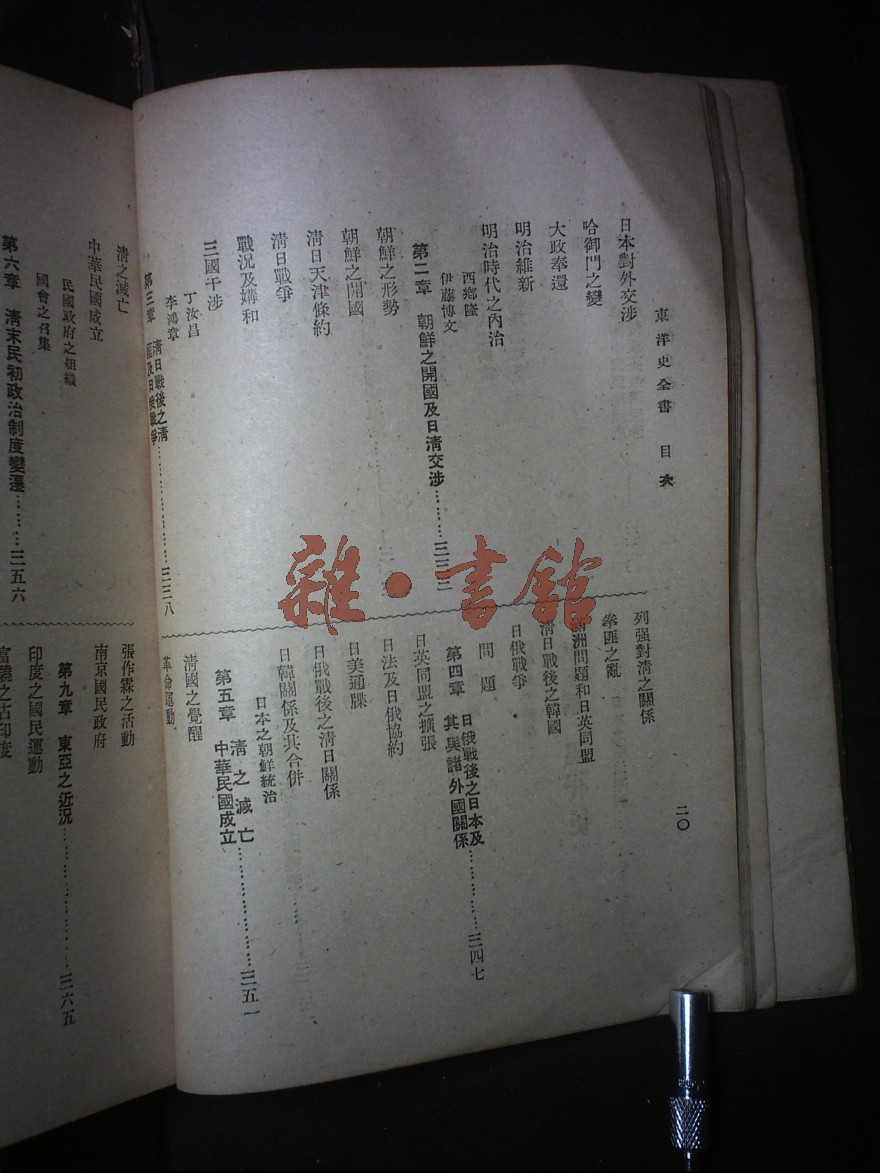 東洋史全書 目次
二〇
日本對外交涉
哈御門之變
大政奉還
明治維新
明治時代之內治
西鄉隆
伊藤博文
第二章 朝鮮之開國及日清交涉………三三三
朝鮮之形勢
朝鮮之開國
清日天津條約
清日戰爭
戰況及媾和
三國干涉
丁汝昌
李鴻章
第三章 清日戰後之清
及日俄戰爭…………三三八
列强對清之關係
拳匪之亂
滿洲問題和日英同盟
清日戰後之韓國
日俄戰爭
問題
第四章 日俄戰後之日本及
其與諸外國關係…………三四七
日英同盟之擴張
日法及日俄協約
日美通牒
日俄戰後之清日關係
日韓關係及其合併
日本之朝鮮統治
第五章 清之滅亡
中華民國成立…………三五一
清國之覺醒
革命運動
清之滅亡
中華民國成立
民國政府之組織
國會之召集
第六章 清末民初政治制度變遷………三五六
張作霖之活動
南京國民政府
第九章 東亞之近況…………三六五
印度之國民運動
雜·書館